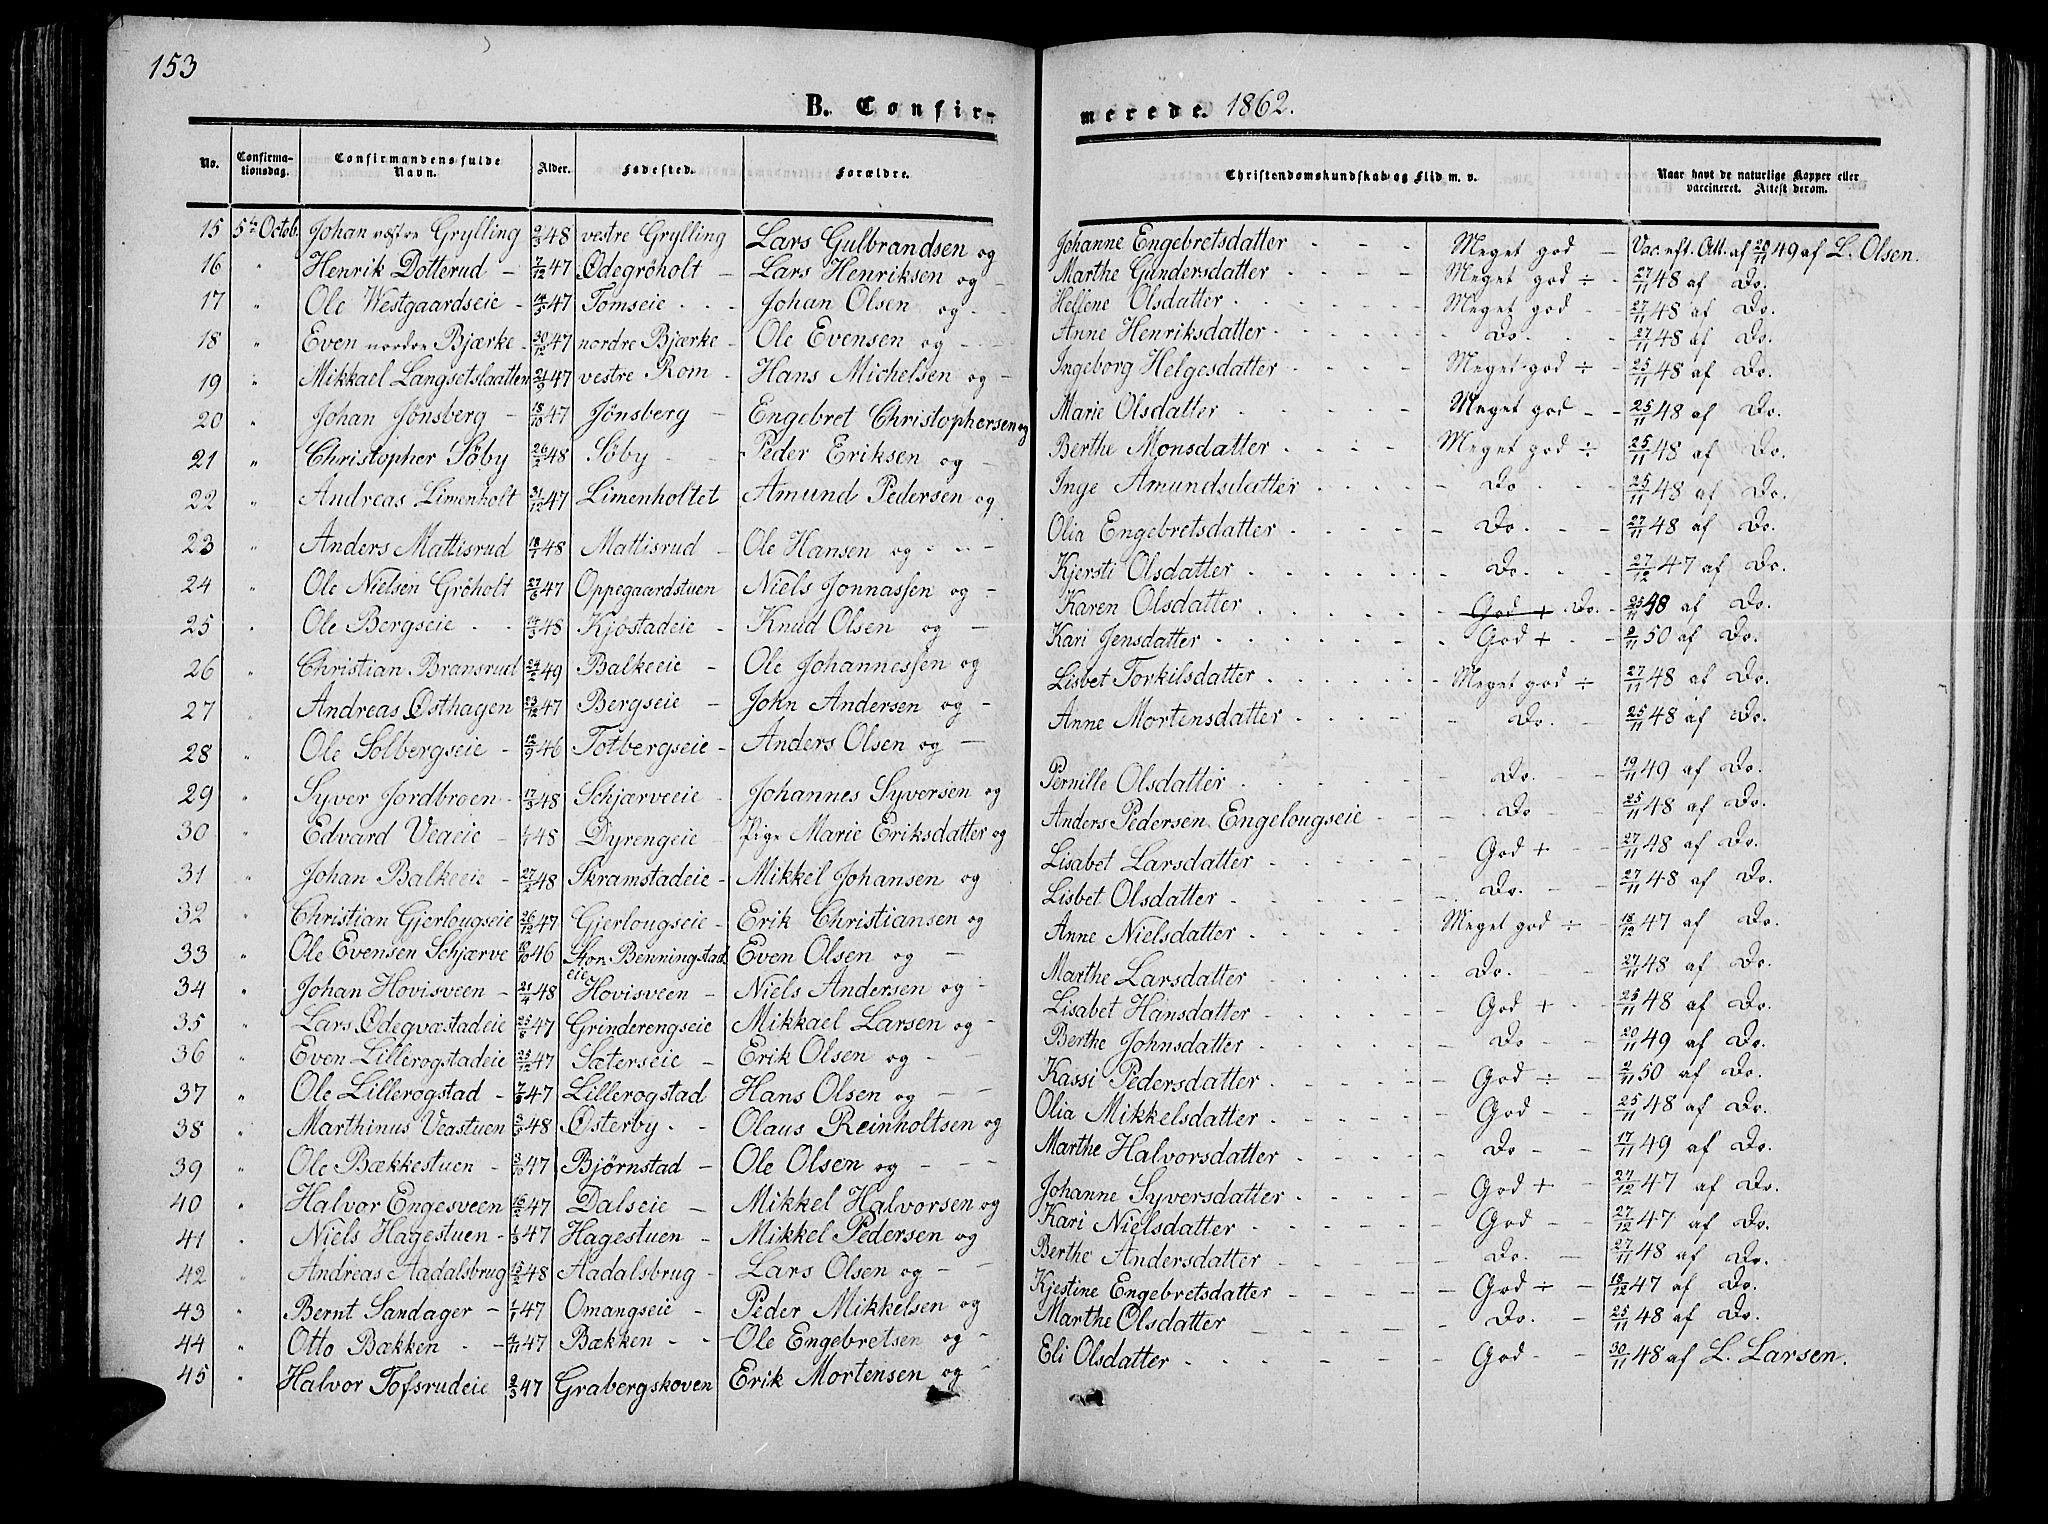 153
B. Confir-merede. 1862.
No. Confirmationsdag. Confirmandens fulde Navn. Alder. Fødested. Forældre. Christendomskundskab og Flid m. v. Naar havt de naturlige Kopper eller vaccineret. Attest derom.
15 5te Octob. Johan vestre Grylling 2/3 48 vestre Grylling Lars Gulbrandsen og Johanne Engebretsdatter - - - Meget god - Vac. eft. Att. af 20/11 49 af L. Olsen.
16 " Henrik Dotterud - 7/12 47 Ødegrøholt - Lars Henriksen og - Marthe Gundersdatter - - - Meget god ÷ 27/11 48 af Do.
17 " Ole Westgaardseie - 14/5 47 Tomseie - - Johan Olsen og - Hellene Olsdatter - - - Meget god - 27/11 48 af Do.
18 " Even nordre Bjærke - 30/12 47 nordre Bjærke - Ole Evensen og - Anne Henriksdatter - - - Do. - 27/11 48 af Do.
19 " Mikkael Langsetslaatten 21/9 47 vestre Rom - Hans Michelsen og - Ingeborg Helgesdatter - - - Meget god ÷ 25/11 48 af Do.
20 " Johan Jønsberg - 18/10 47 Jønsberg - Engebret Christophersen og Marie Olsdatter - - - Meget god - 25/11 48 af Do.
21 " Christopher Søby 26/2 48 Søby - - Peder Eriksen og - Berthe Monsdatter - - - Meget god ÷ 25/11 48 af Do.
22 " Andreas Limenholt 31/12 47 Limenholtet Amund Pedersen og Inge Amundsdatter - - - Do - 25/11 48 af Do.
23 " Anders Mattisrud 18/1 48 Mattisrud - Ole Hansen og - - Olia Engebretsdatter - - - Do. - 27/11 48 af Do.
24 " Ole Nielsen Grøholt 27/6 47 Oppegaardstuen Niels Jonnassen og - Kjersti Olsdatter - - - Do. - 27/12 47 af Do.
25 " Ole Bergseie - - 14/3 48 Kjostadeie - Knud Olsen og - Karen Olsdatter - - - God + Do. - 25/11 48 af Do.
26 " Christian Bransrud 24/2 49 Balkeeie - Ole Johannessen og Kari Jensdatter - - - God + - 2/11 50 af Do.
27 " Andreas Østhagen 23/12 47 Bergseie - John Andersen og - Lisbet Torkilsdatter - - - Meget god ÷ 27/11 48 af Do.
28 " Ole Solbergseie - 12/9 46 Totbergseie - Anders Olsen og - Anne Mortensdatter - - - Do. - 25/11 48 af Do.
29 " Syver Jordbroen - 17/3 48 Schjærveeie - Johannes Syversen og Pernille Olsdatter - - - Do. - 19/11 49 af Do.
30 " Edvard Veaeie - 1/1 48 Dyrengeie - Pige Marie Eriksdatter og Anders Pedersen Engelougseie - - Do - 25/11 48 af Do.
31 " Johan Balkeeie - 27/2 48 Skramstadeie - Mikkel Johansen og Lisabet Larsdatter - - - God + - 27/11 48 af Do.
32 " Christian Gjerlougseie 26/12 47 Gjerlougseie - Erik Christiansen og Lisbet Olsdatter - - - Do. - 27/11 48 af Do.
33 " Ole Evensen Schjærve 12/10 46 Stor Benningstad eie Even Olsen og - Anne Nielsdatter - - - Meget god ÷ 18/12 47 af Do.
34 " Johan Hovisveen - 21/4 48 Hovisveen - Niels Andersen og - Marthe Larsdatter - - - Do. - 27/11 48 af Do.
35 " Lars Ødegvæstadeie 25/6 47 Grinderengseie Mikkael Larsen og - Lisabet Hansdatter - - - God + - 25/11 48 af Do.
36 " Even Lillerogstadeie 25/12 47 Sæterseie - Erik Olsen og - - Berthe Johnsdatter - - - Do - 20/11 49 af Do.
37 " Ole Lillerogstad - 7/6 47 Lillerogstad Hans Olsen og - - Kassi Pedersdatter - - - God ÷ - 2/11 50 af Do.
38 " Marthinus Veastuen 3/3 48 Østerby - - Olaus Reinholtsen og Olia Mikkelsdatter - - - God - 25/11 48 af Do.
39 " Ole Bækkestuen - 3/10 47 Bjørnstad - Ole Olsen og - - - Marthe Halvorsdatter - - - Do - 17/11 49 af Do.
40 " Halvor Engesveen 16/2 47 Dalseie - Mikkel Halvorsen og Johanne Syversdatter - - - God + - 27/12 47 af Do.
41 " Niels Hagestuen - 1/5 47 Hagestuen - Mikkel Pedersen og Kari Nielsdatter - - - God - 27/12 47 af Do.
42 " Andreas Aadalsbrug 15/2 48 Aadalsbrug - Lars Olsen og - - Berthe Andersdatter - - - Do. - 27/11 48 af Do.
43 " Bernt Sandager - 1/1 47 Omangseie - Peder Mikkelsen og Kjestine Engebretsdatter - - - God ÷ - 18/12 47 af Do.
44 " Otto Bækken - - 4/11 47 Bækken - - Ole Engebretsen og - Marthe Olsdatter - - - Do. - 25/11 48 af Do.
45 " Halvor Tofsrudeie 2/3 47 Grabergskoven Erik Mortensen og - Eli Olsdatter - - - God - - 30/11 48 af L. Larsen.